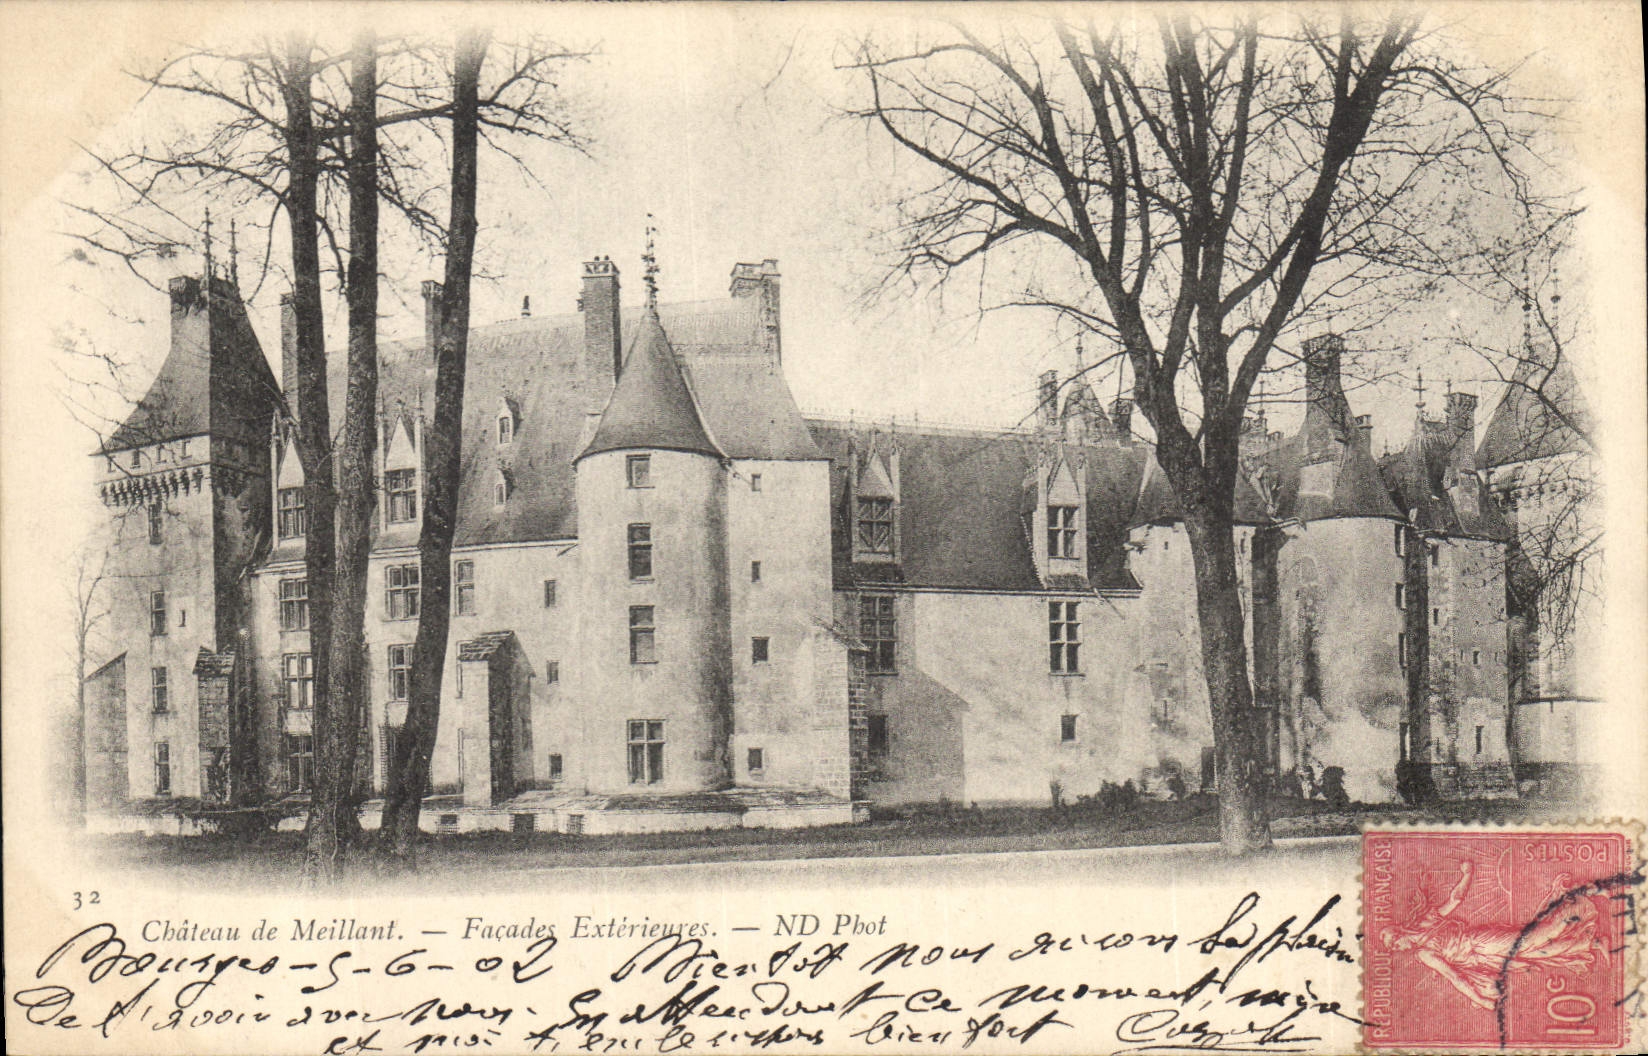 32
Château de Meillant. — Façades Extérieures. — ND Phot
Bourges - 5 - 6 - 02 Bientôt nous aurons le plaisir
De t'avoir avec nous. En attendant ce moment, mère
et moi t'embrassons bien fort
RÉPUBLIQUE FRANÇAISE
POSTES
10c